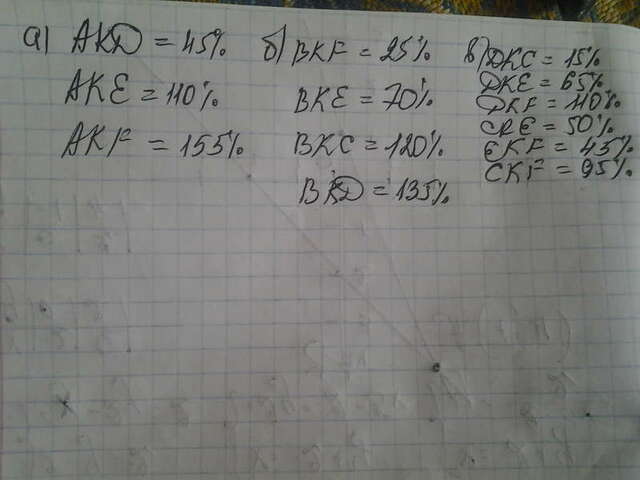 а) AKD = 45%
AKE = 110%
AKF = 155%
б) BKF = 25%
BKE = 70%
BKC = 120%
BKD = 135%
в) DKC = 15%
DKE = 65%
DKF = 110%
CKE = 50%
EKF = 45%
CKF = 95%